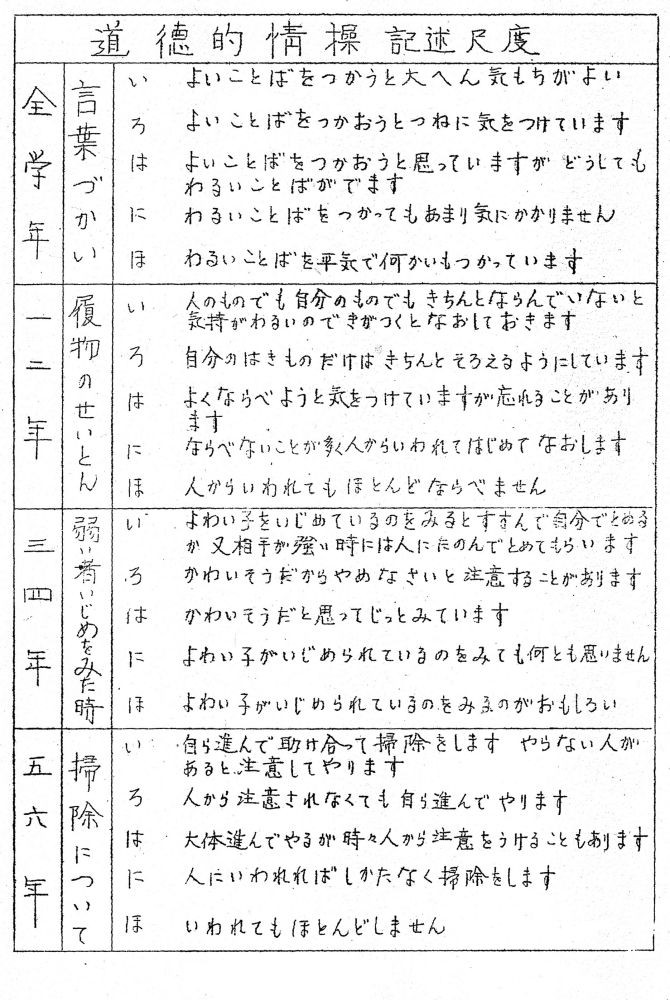 道徳的情操記述尺度
全学年
言葉づかい
い よいことばをつかうと大へん気もちがよい
ろ よいことばをつかおうとつねに気をつけています
は よいことばをつかおうと思っていますが どうしても
わるいことばがでます
に わるいことばをつかってもあまり気にかかりません
ほ わるいことばを平気で何かいもつかっています
一二年
履物のせいとん
い 人のものでも自分のものでもきちんとならんでいないと
気持がわるいのできがつくとなおしておきます
ろ 自分のはきものだけはきちんとそろえるようにしています
は よくならべようと気をつけていますが忘れることがあり
ます
に ならべないことが多く人からいわれてはじめてなおします
ほ 人からいわれてもほとんどならべません
三四年
弱い者いじめをみた時
い よわい子をいじめているのをみるとすすんで自分でとめる
か又相手が強い時には人にたのんでとめてもらいます
ろ かわいそうだからやめなさいと注意することがあります
は かわいそうだと思ってじっとみています
に よわい子がいじめられているのをみても何とも思いません
ほ よわい子がいじめられているのをみるのがおもしろい
五六年
掃除について
い 自ら進んで助け合って掃除をします やらない人が
あると注意してやります
ろ 人から注意されなくても自ら進んでやります
は 大体進んでやるが時々人から注意をうけることもあります
に 人にいわれればしかたなく掃除をします
ほ いわれてもほとんどしません